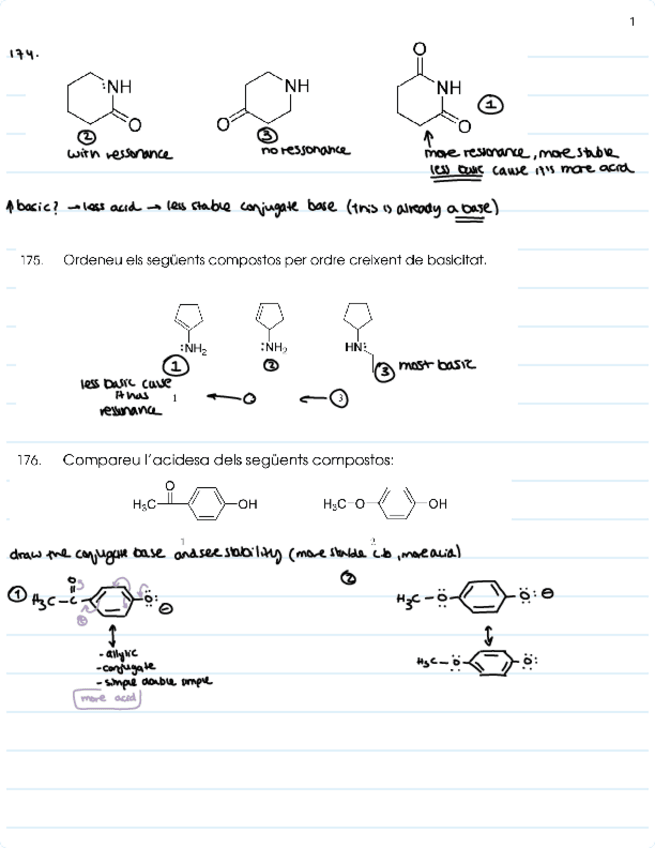 1
174.
:NH
O
NH
O
O
NH
O
2
3
1
with ressonance
no ressonance
more resionance, more stable
less basic cause it's more acid
↑ basic? → less acid → less stable conjugate base (this is already a base)
175. Ordeneu els següents compostos per ordre creixent de basicitat.
:NH2
:NH2
HN:
1
2
3 most basic
less basic cause
it has
ressonance
1
3
176. Compareu l'acidesa dels següents compostos:
O
H3C
OH
H3C-O
OH
1
2
draw the conjugate base and see stability (more stable c.b, more acid)
1
O
H3C-C
O:
⊖
2
H3C-O
O: ⊖
- allylic
- conjugate
- simple double simple
more acid
H3C-O
O: